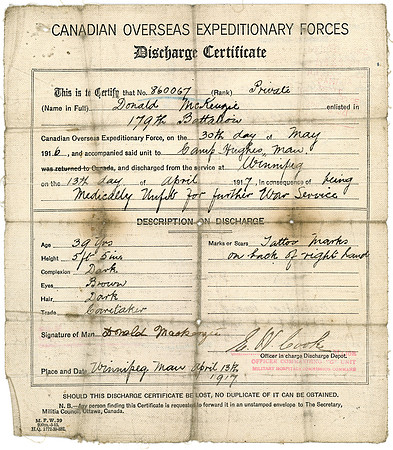 CANADIAN OVERSEAS EXPEDITIONARY FORCES
Discharge Certificate
This is to Certify that No. 860067 (Rank) Private
(Name in Full) Donald McKenzie enlisted in
179th Battalion
Canadian Overseas Expeditionary Force, on the 30th day of May
1916, and accompanied said unit to Camp Hughes, Man.
was returned to Canada, and discharged from the service at Winnipeg
on the 13th day of April 1917, in consequence of being
Medically Unfit for further War Service
DESCRIPTION ON DISCHARGE
Age 39 Yrs
Height 5 ft 5 ins
Complexion Dark
Eyes Brown
Hair Dark
Trade Caretaker
Marks or Scars Tattoo Marks
on back of right hand
Signature of Man Donald Mackenzie
E W Cook
Officer in charge Discharge Depot.
OFFICER COMMANDING UNIT
MILITARY HOSPITALS COMMISSION COMMAND
Place and Date Winnipeg Man April 13th
1917
SHOULD THIS DISCHARGE CERTIFICATE BE LOST, NO DUPLICATE OF IT CAN BE OBTAINED.
N.B.—Any person finding this Certificate is requested to forward it in an unstamped envelope to The Secretary,
Militia Council, Ottawa, Canada.
M. F. W. 39
H.Q. 1772-39-882.